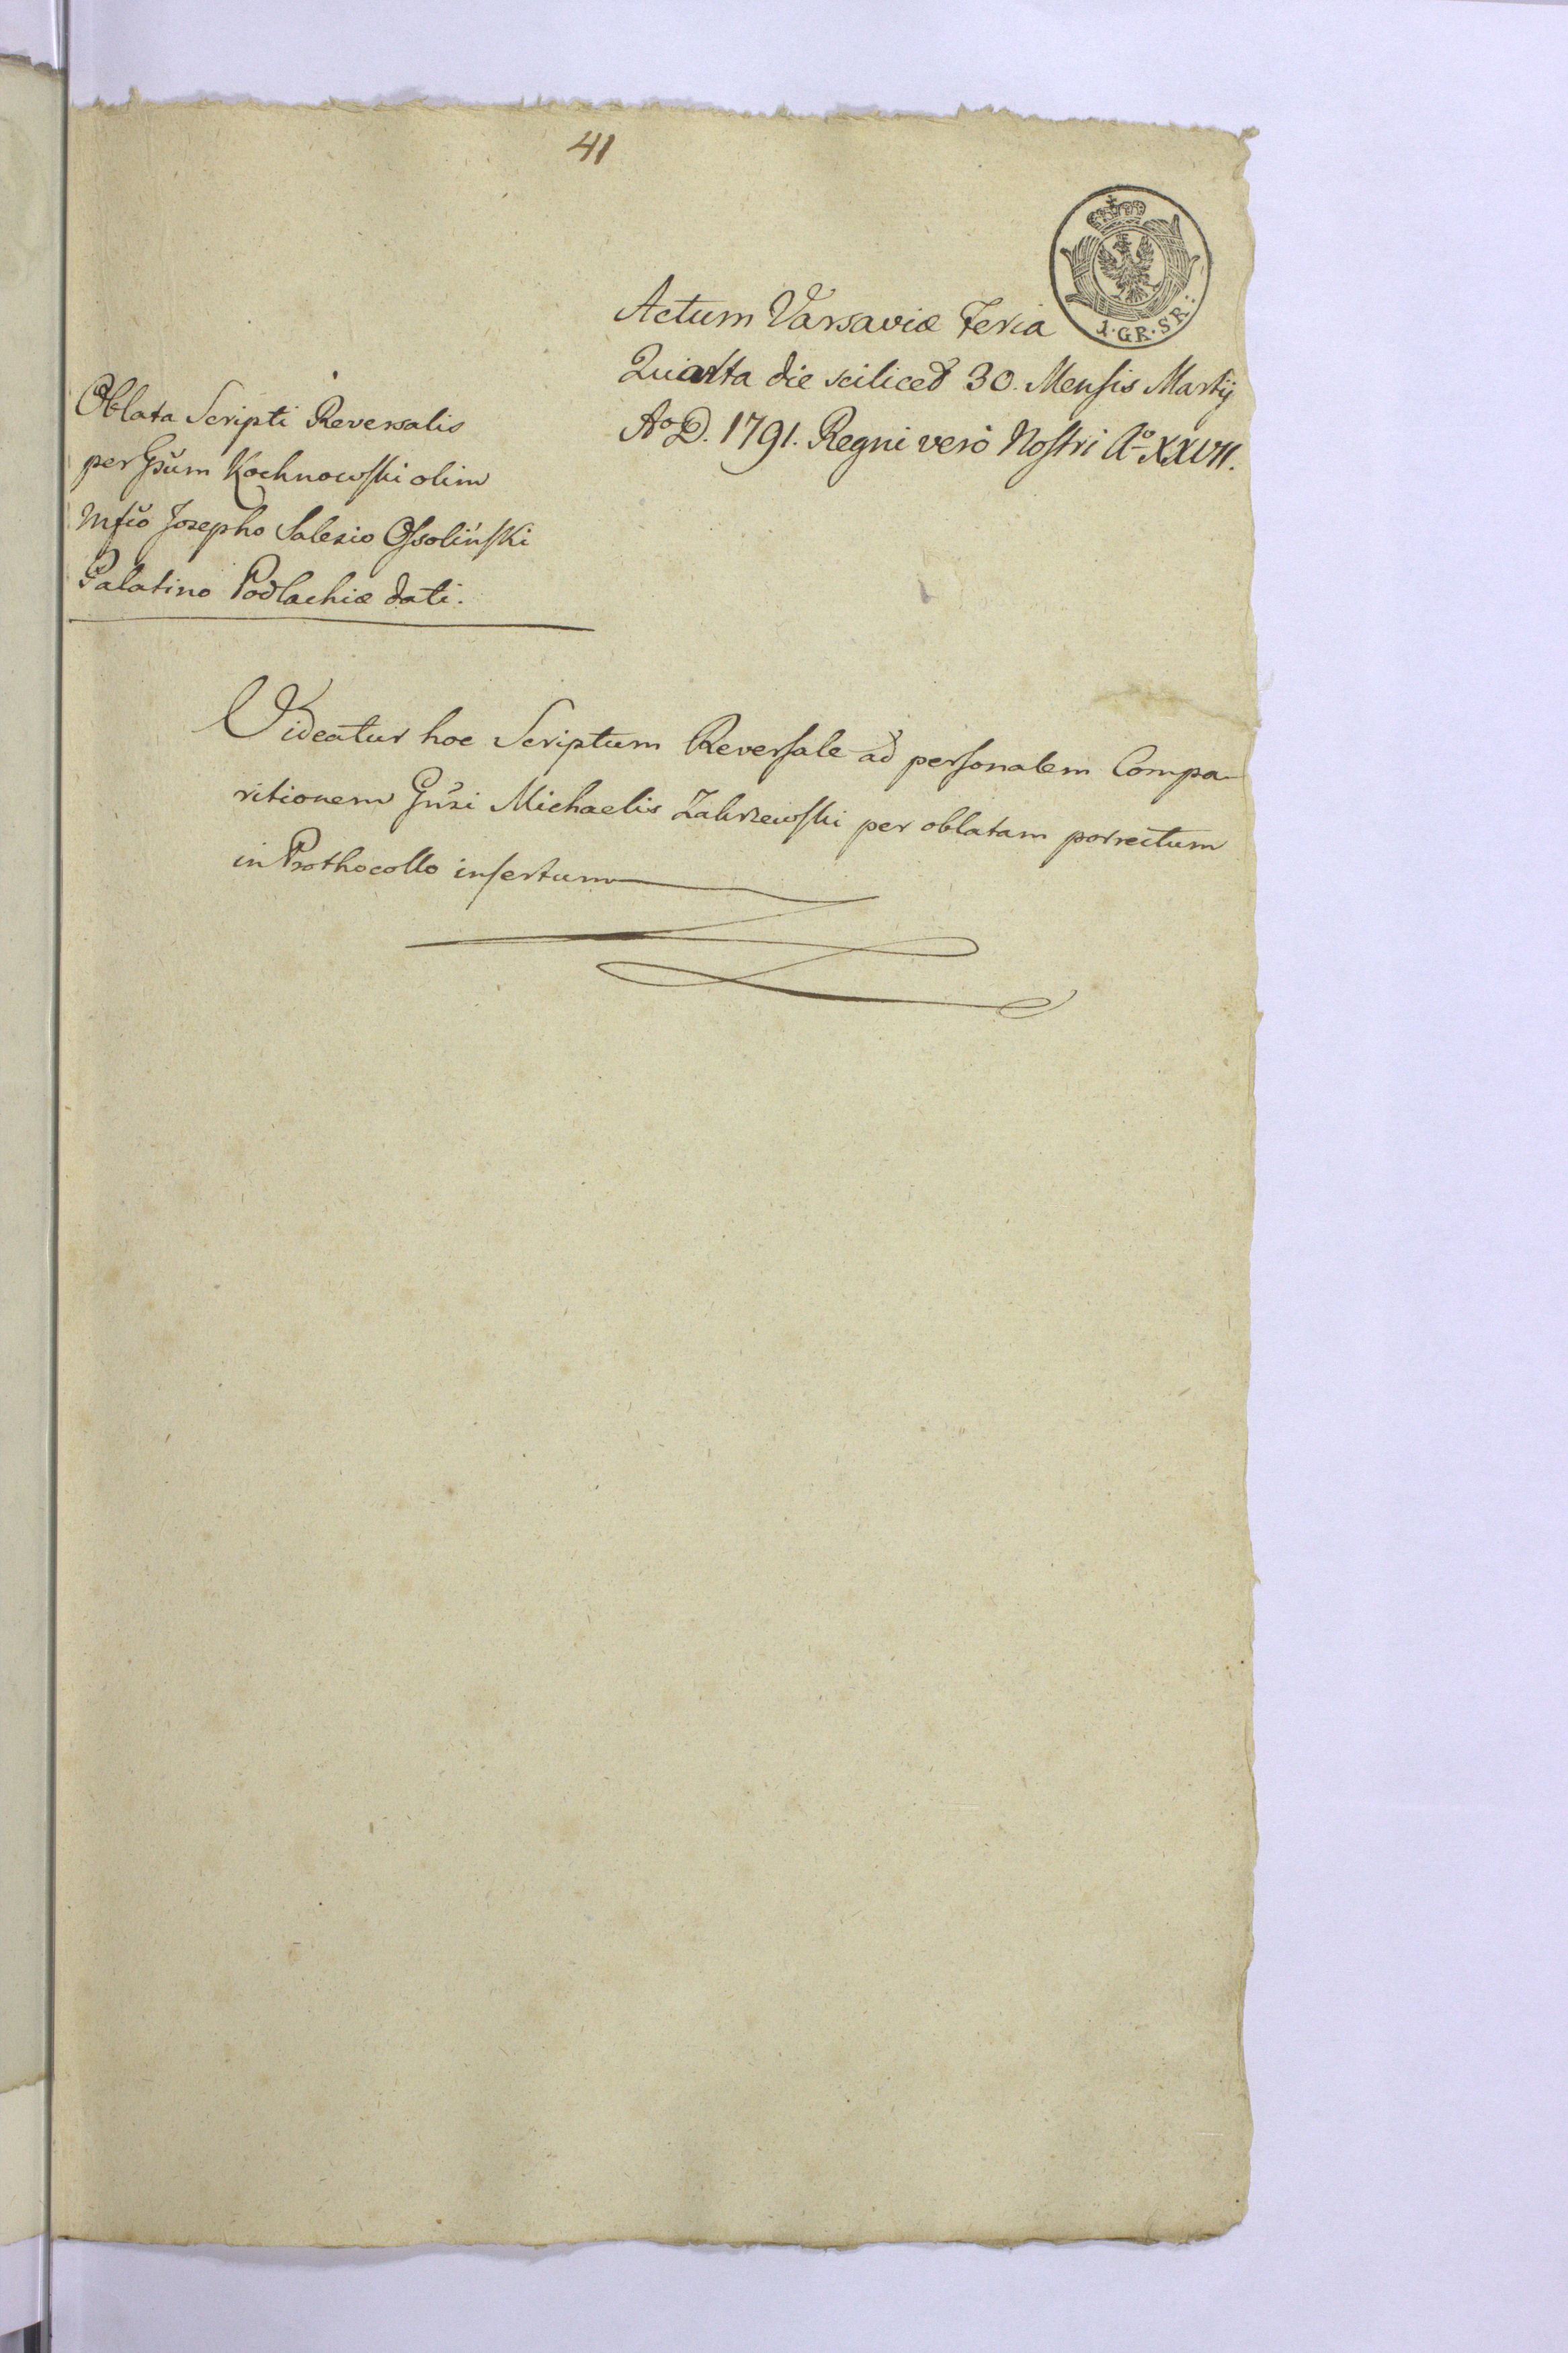 41
1·GR·SR:
Actum Varsaviæ Feria
Quarta die scilicet 30. Mensis Martij
Aº D. 1791. Regni verò Nostri Aº XXVII.
Oblata Scripti Reversalis
per Gsum Kochnowski olim
Mfco Josepho Salezio Ossoliński
Palatino Podlachiæ dati.
Videatur hoc Scriptum Reversale ad personalem Compa-
ritionem Gnsi Michaelis Zakrzewski per oblatam porrectum
in Prothocollo insertum